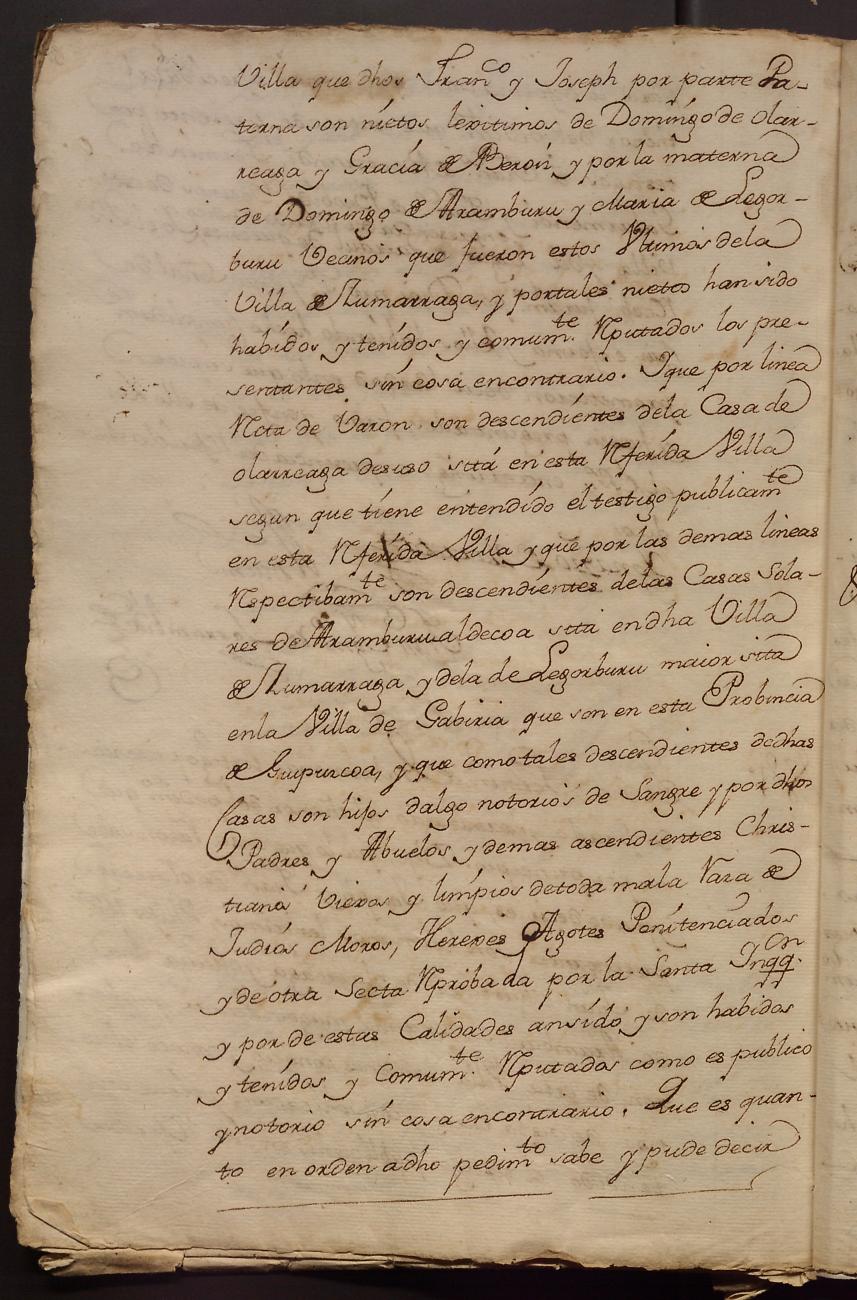 Villa que dhos Franco y Joseph por parte Pa-
terna son nietos lexitimos de Domingo de olar-
reaga y Gracia de Beroiz y por la materna
de Domingo de Aramburu y Maria de Legor-
buru Vecinos que fueron estos Vltimos dela
Villa de Zumarraga, y portales nietos han sido
habidos y tenidos y comumte Rputados los pre-
sentantes sin cosa encontrario. Ique por linea
Rcta de Varon son descendientes dela Casa de
olarreaga desuso sita en esta Rferida Villa
segun que tiene entendido el testigo publicamte
en esta Rferida Villa y que por las demas lineas
Rspectibamte son descendientes delas Casas Sola-
res de Aramburualdecoa sita en dha Villa
de Zumarraga y dela de Legorburu maior sita
enla Villa de Gabiria que son en esta Probincia
de Guipuzcoa, y que como tales descendientes dedhas
Casas son hijos dalgo notorios de Sangre y por dhos
Padres y Abuelos y demas ascendientes Chris-
tianos Viexos y limpios detoda mala Raza de
Judios Moros, Herexes y Agotes Penitenciados
y de otra Secta Rprobada por la Santa Inqqon
y por de estas Calidades an sido y son habidos
y tenidos y Comumte Rputados como es publico
y notorio sin cosa encontrario. Que es quan-
to en orden adho pedimto sabe y pude decir